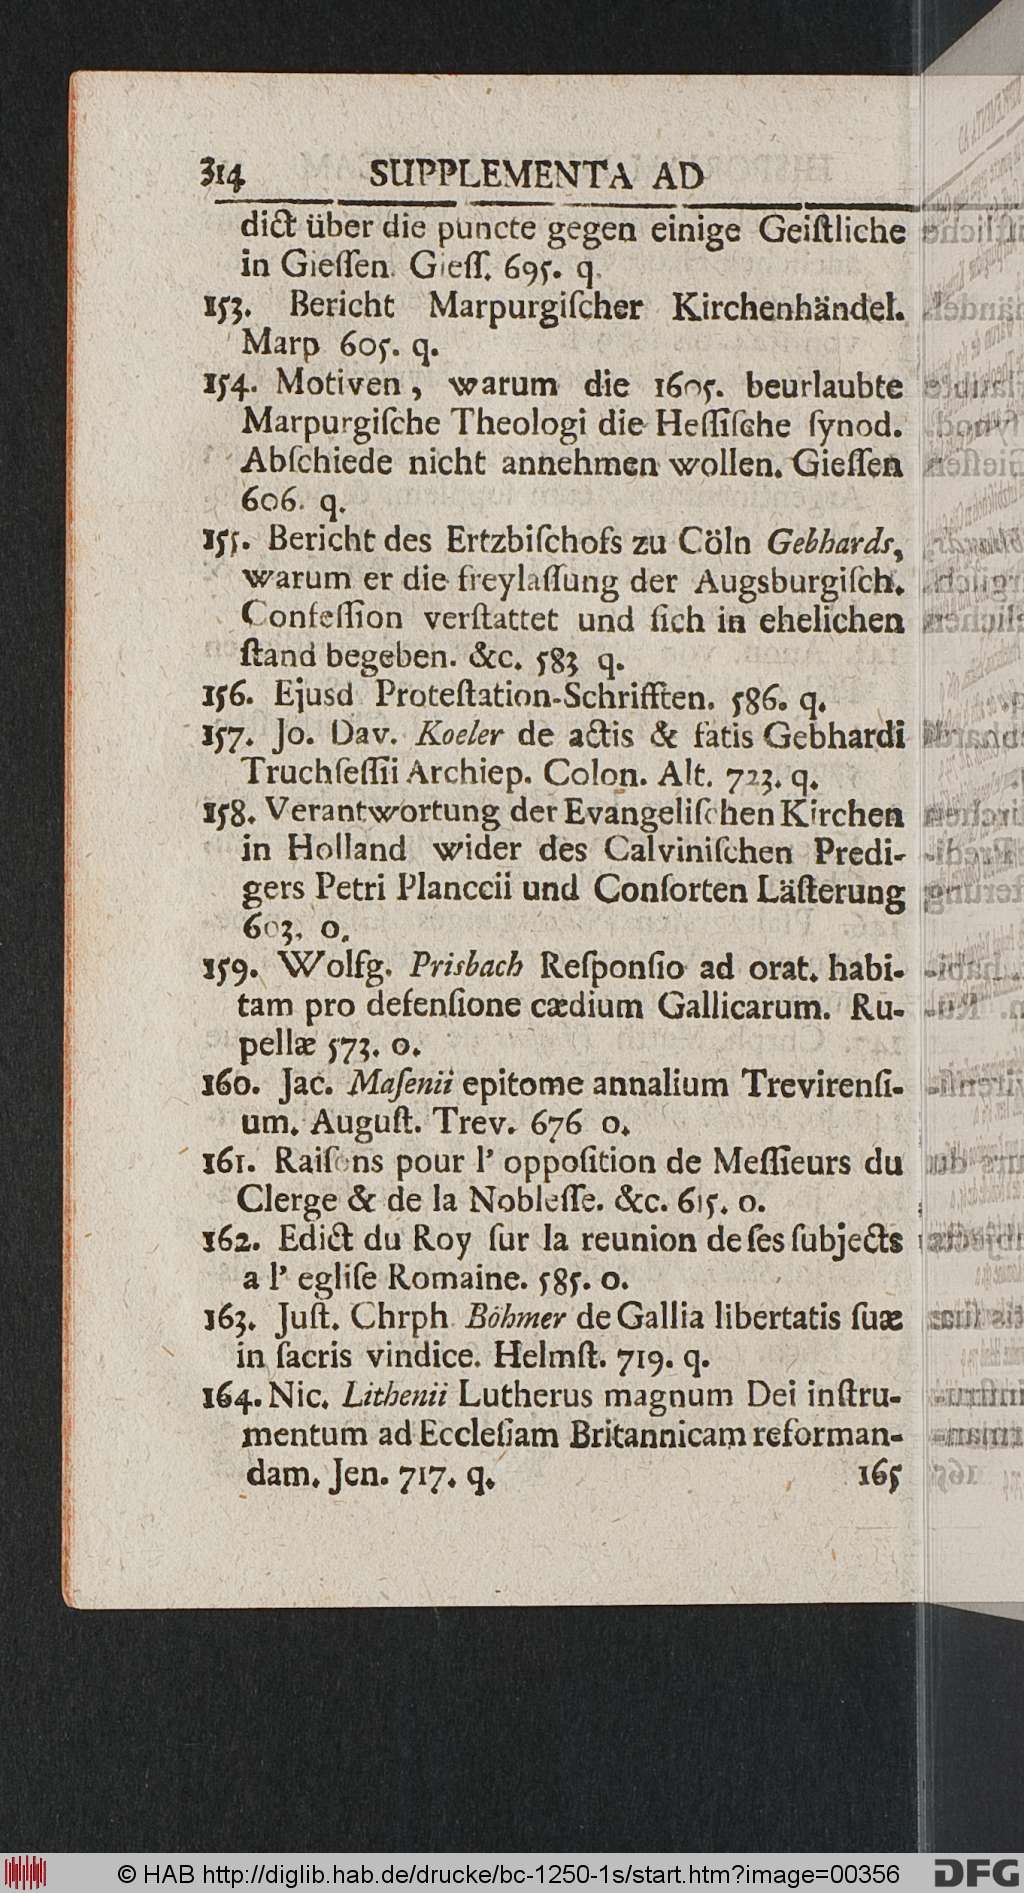 314 SUPPLEMENTA AD
dict über die puncte gegen einige Geiſtliche
in Gieſſen. Gieſſ. 695. q.
153. Bericht Marpurgiſcher Kirchenhändel.
Marp 605. q.
154. Motiven, warum die 1605. beurlaubte
Marpurgiſche Theologi die Heſſiſche ſynod.
Abſchiede nicht annehmen wollen. Gieſſen
606. q.
155. Bericht des Ertzbiſchofs zu Cöln Gebhards,
warum er die freylaſſung der Augsburgiſch.
Confeſſion verſtattet und ſich in ehelichen
ſtand begeben. &c. 583 q.
156. Ejusd Proteſtation-Schrifften. 586. q.
157. Jo. Dav. Koeler de actis & fatis Gebhardi
Truchſeſſii Archiep. Colon. Alt. 723. q.
158. Verantwortung der Evangeliſchen Kirchen
in Holland wider des Calviniſchen Predi-
gers Petri Planccii und Conſorten Läſterung
603. o.
159. Wolfg. Prisbach Reſponſio ad orat. habi-
tam pro defenſione cædium Gallicarum. Ru-
pellæ 573. o.
160. Jac. Maſenii epitome annalium Trevirenſi-
um. Auguſt. Trev. 676 o.
161. Raiſons pour l' oppoſition de Meſſieurs du
Clerge & de la Nobleſſe. &c. 615. o.
162. Edict du Roy ſur la reunion de ſes ſubjects
a l' egliſe Romaine. 585. o.
163. Juſt. Chrph Böhmer de Gallia libertatis ſuæ
in ſacris vindice. Helmſt. 719. q.
164. Nic. Lithenii Lutherus magnum Dei inſtru-
mentum ad Eccleſiam Britannicam reforman-
dam. Jen. 717. q. 165
© HAB http://diglib.hab.de/drucke/bc-1250-1s/start.htm?image=00356 DFG